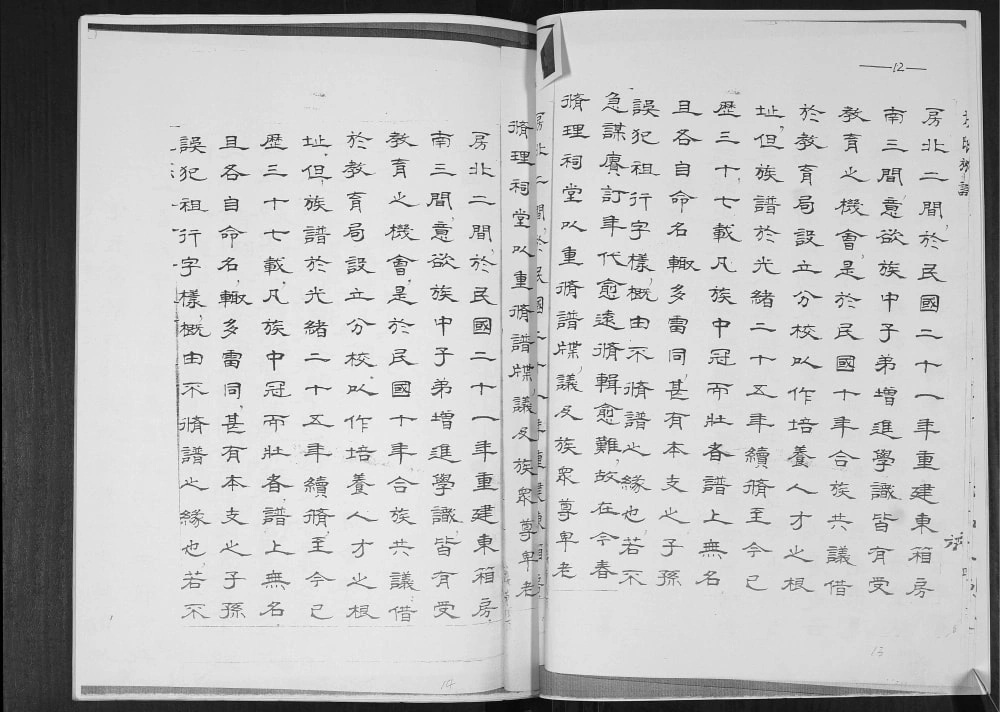 12
房北二間,於民國二十一年重建東箱房
南三間,意欲族中子弟增進學識,皆有受
教育之機會,是於民國十年合族共議借
於教育局設立分校以作培養人才之根
址,但族譜於光緒二十五年續脩,至今已
歷三十七載,凡族中冠而壯者,譜上無名
且各自命名,輙多雷同,甚有本支之子孫
誤犯祖行字樣,概由不脩譜之緣也,若不
急謀賡訂年代愈遠脩輯愈難,故在今春
脩理祠堂以重脩譜牒,議及族衆尊卑老
13
脩理祠堂以重脩譜牒議及族衆尊卑老
房北二間,於民國二十一年重建東箱房
南三間,意欲族中子弟增進學識,皆有受
教育之機會,是於民國十年合族共議借
於教育局設立分校以作培養人才之根
址,但族譜於光緒二十五年續脩,至今已
歷三十七載,凡族中冠而壯者,譜上無名
且各自命名,輙多雷同,甚有本支之子孫
誤犯祖行字樣,概由不脩譜之緣也,若不
14